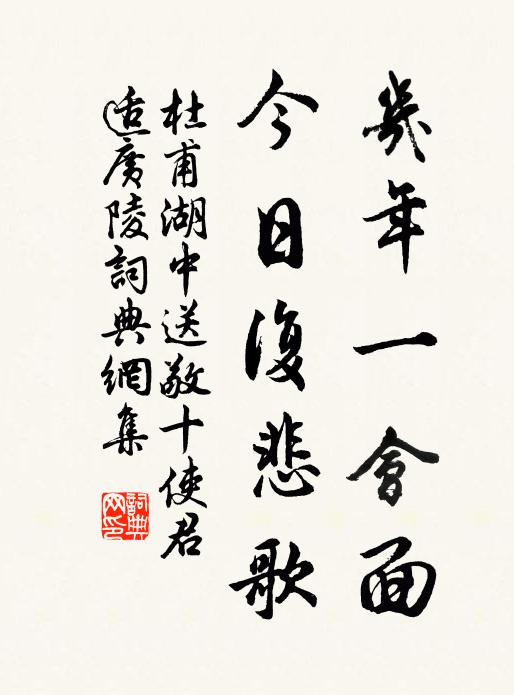 幾年一會面
今日復悲歌
杜甫湖中送敬十使君
適廣陵詞典網集
詞典
网印